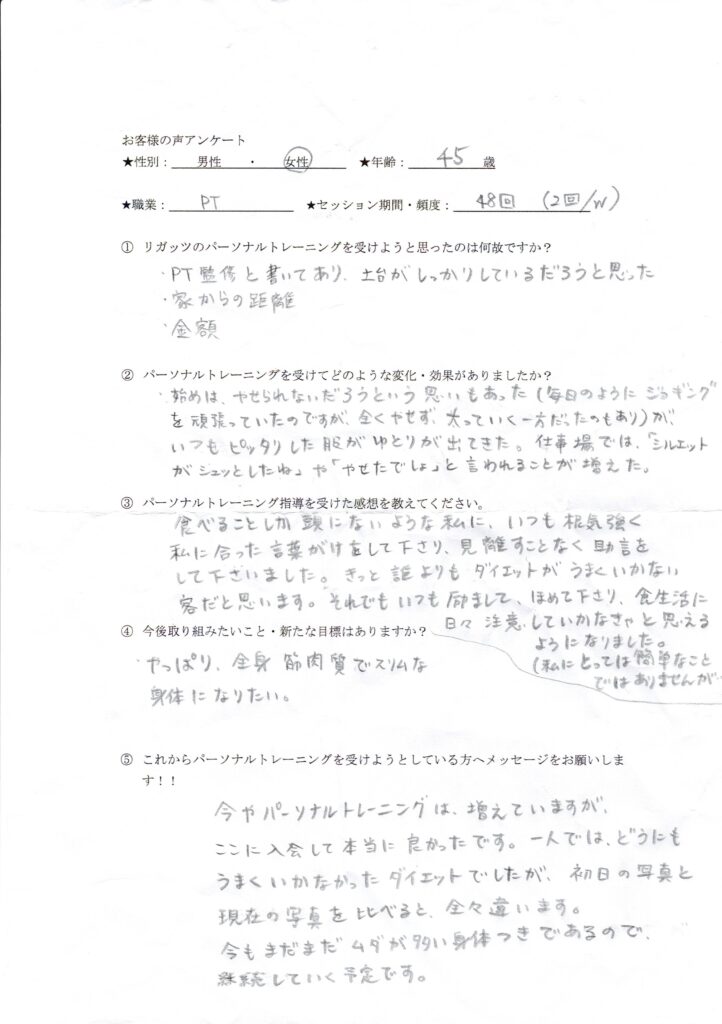 お客様の声アンケート
★性別： 男性 ・ 女性 ★年齢： 45 歳
★職業： PT ★セッション期間・頻度： 48回 (2回/W)
① リガッツのパーソナルトレーニングを受けようと思ったのは何故ですか？
・PT監修と書いてあり、土台がしっかりしているだろうと思った
・家からの距離
・金額
② パーソナルトレーニングを受けてどのような変化・効果がありましたか？
・始めは、やせられないだろうという思いもあった(毎日のようにジョギング
を頑張っていたのですが、全くやせず、太っていく一方だったのもあり)が、
いつもピッタリした服がゆとりが出てきた。仕事場では、「シルエット
がシュッとしたね」や「やせたでしょ」と言われることが増えた。
③ パーソナルトレーニング指導を受けた感想を教えてください。
食べることしか頭にないような私に、いつも根気強く
私に合った言葉がけをして下さり、見離すことなく助言を
して下さいました。きっと誰よりもダイエットがうまくいかない
客だと思います。それでもいつも励まして、ほめて下さり、食生活に
日々注意していかなきゃと思える
ようになりました。
(私にとっては簡単なこと
ではありませんが…
④ 今後取り組みたいこと・新たな目標はありますか？
・やっぱり、全身筋肉質でスリムな
身体になりたい。
⑤ これからパーソナルトレーニングを受けようとしている方へメッセージをお願いしま
す！！
今やパーソナルトレーニングは、増えていますが、
ここに入会して本当に良かったです。一人では、どうにも
うまくいかなかったダイエットでしたが、初日の写真と
現在の写真を比べると、全々違います。
今もまだまだムダが多い身体つきであるので、
継続していく予定です。